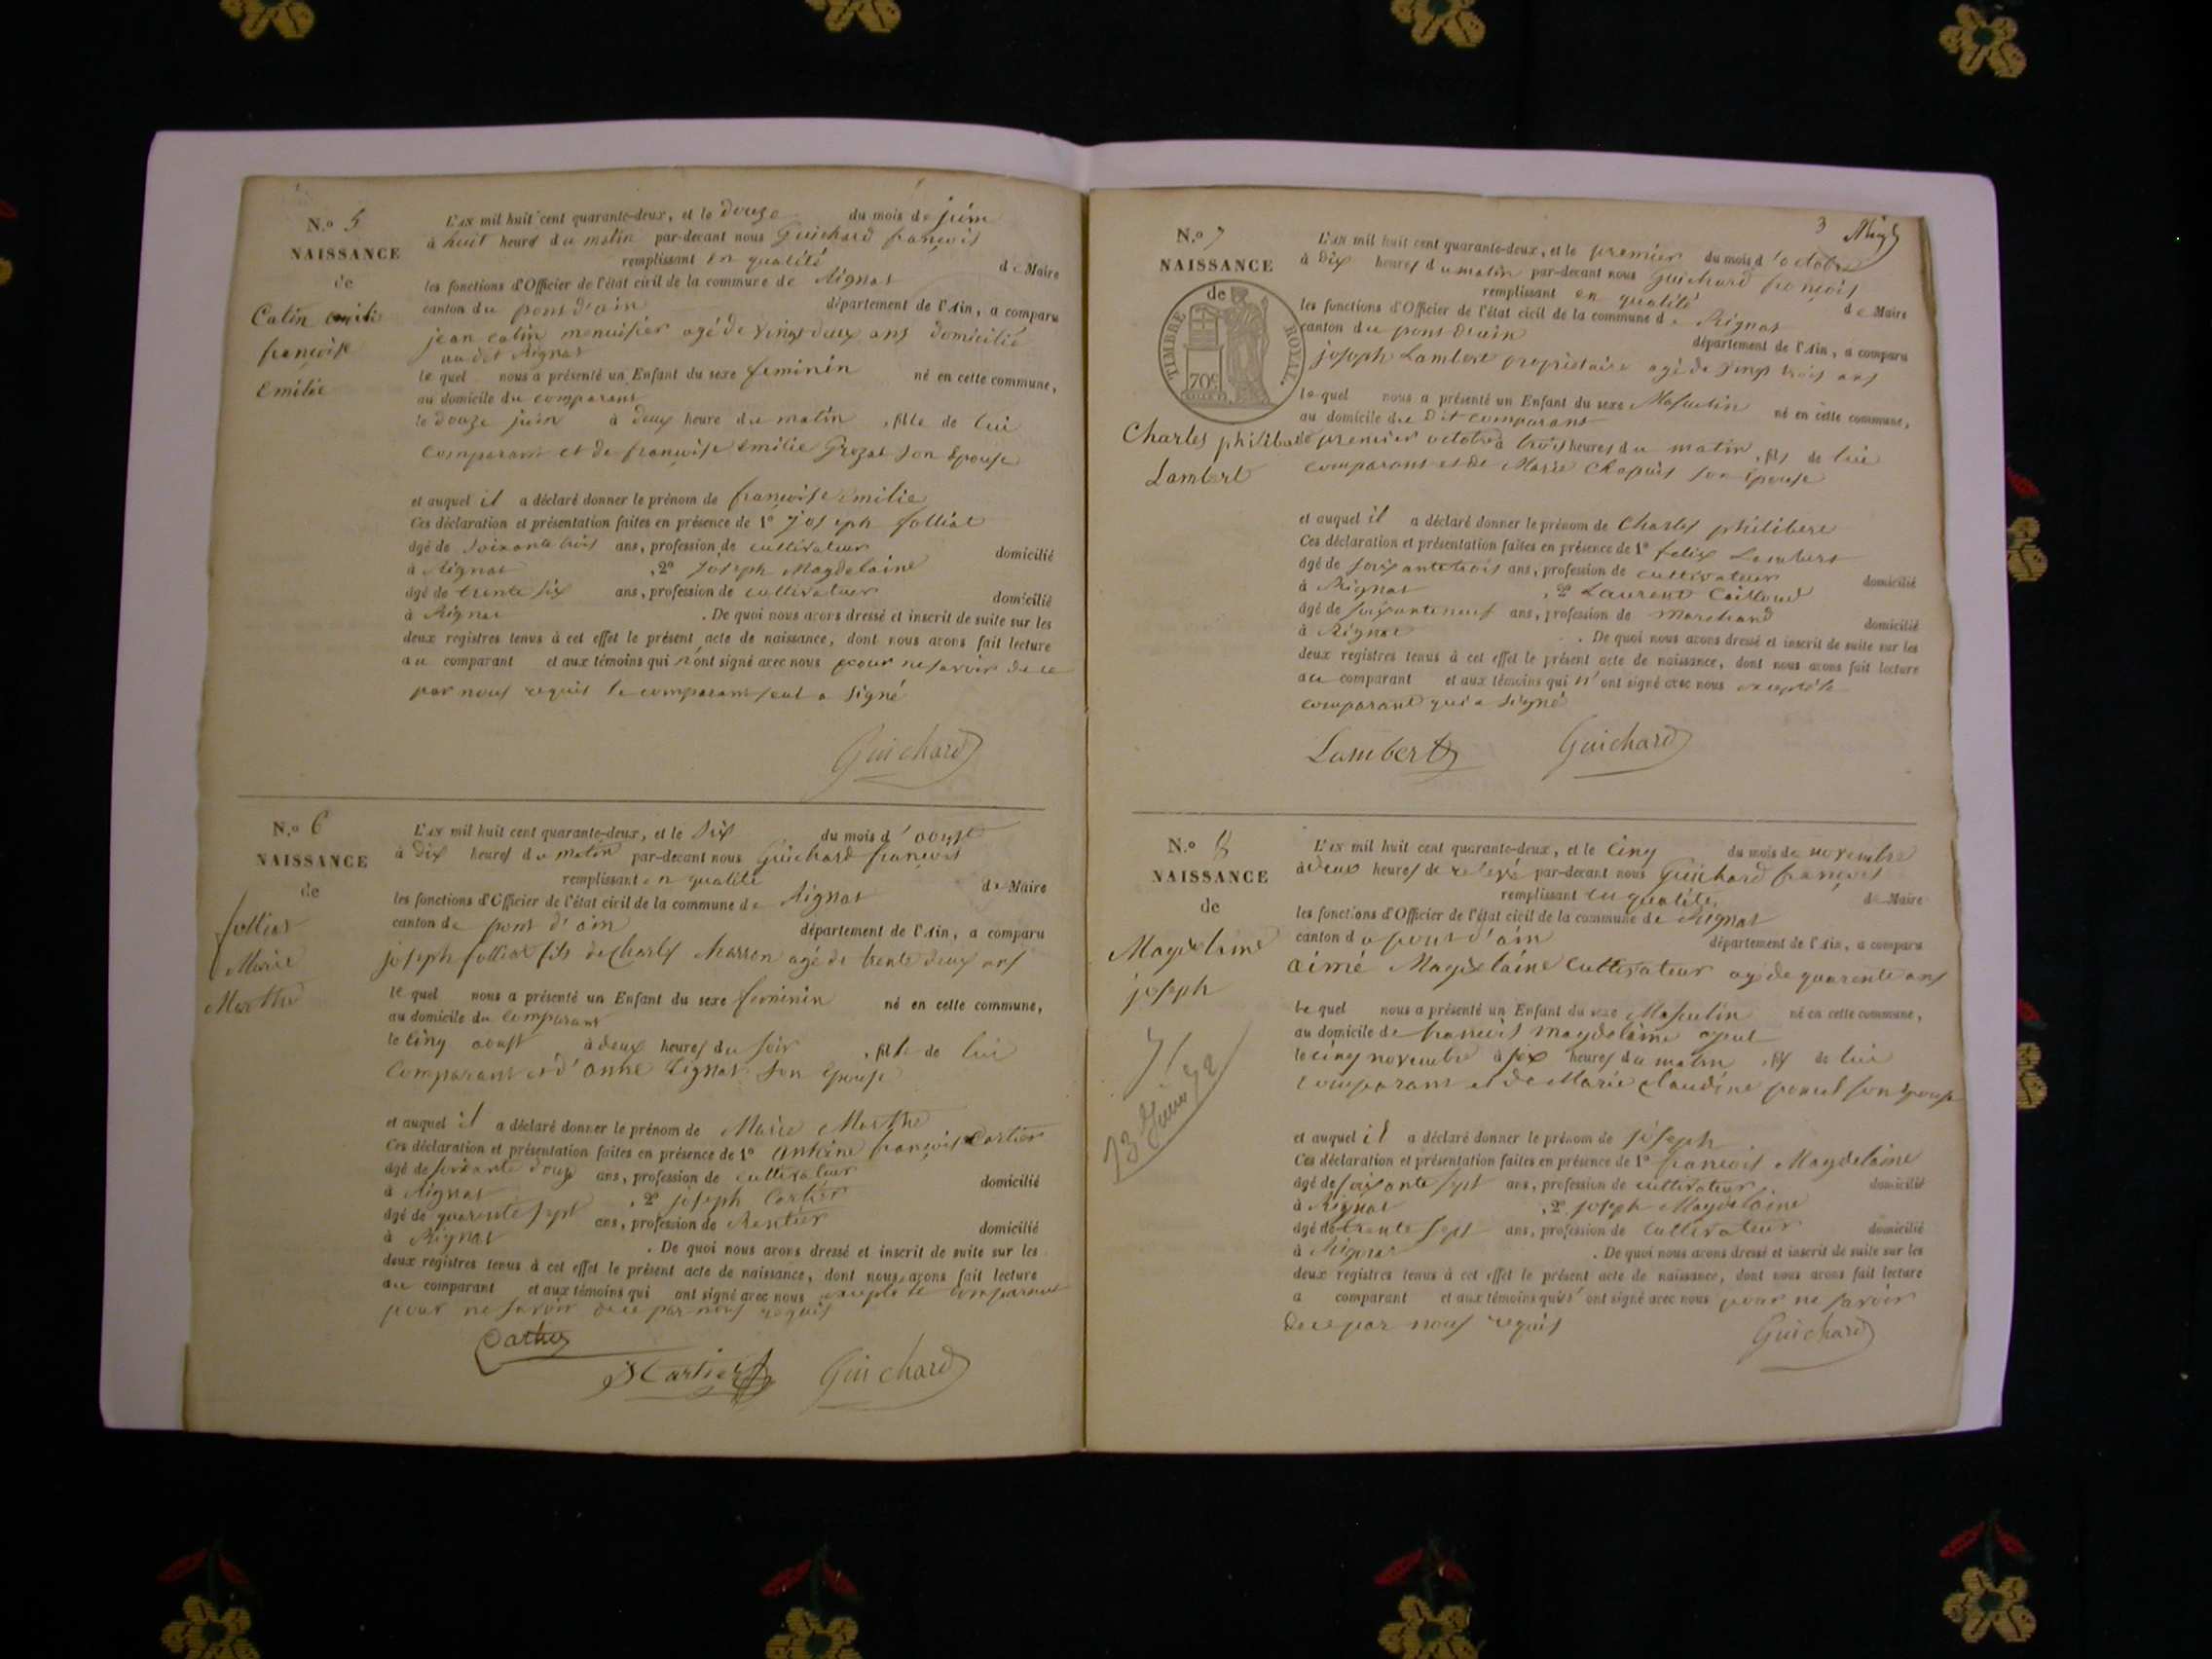 N.º 5
NAISSANCE
de
Catin
françoise
Emilie
L'an mil huit cent quarante-deux, et le douze du mois de juin
à huit heures du matin par-devant nous Guichard françois
remplissant en qualité de Maire
les fonctions d'Officier de l'état civil de la commune de Rignat
canton du pont d'ain département de l'Ain, a comparu
jean catin menuisier agé de vingt deux ans domicilié
au dit Rignat
le quel nous a présenté un Enfant du sexe feminin né en cette commune,
au domicile du comparant
le douze juin à deux heure du matin , fille de lui
comparant et de françoise Emilie son Epouse
et auquel il a déclaré donner le prénom de françoise Emilie
Ces déclaration et présentation faites en présence de 1º joseph folliat
âgé de soixante trois ans, profession de cultivateur domicilié
à Rignat , 2º joseph Magdelaine
âgé de trente six ans, profession de cultivateur domicilié
à Rignat . De quoi nous avons dressé et inscrit de suite sur les
deux registres tenus à cet effet le présent acte de naissance, dont nous avons fait lecture
au comparant et aux témoins qui n'ont signé avec nous pour ne savoir de ce
par nous requis le comparant seul a signé
Guichard
N.º 6
NAISSANCE
de
folliat
Marie
Marthe
L'an mil huit cent quarante-deux, et le six du mois d'aoust
à dix heures du matin par-devant nous Guichard françois
remplissant en qualité de Maire
les fonctions d'Officier de l'état civil de la commune de Rignat
canton de pont d'ain département de l'Ain, a comparu
joseph folliat fils de Charles Marron agé de trente deux ans
le quel nous a présenté un Enfant du sexe feminin né en cette commune,
au domicile du comparant
le cinq aoust à deux heures du soir , fille de lui
comparant et d'anne son Epouse
et auquel il a déclaré donner le prénom de Marie Marthe
Ces déclaration et présentation faites en présence de 1º antoine françois Cartier
âgé de soixante douze ans, profession de cultivateur domicilié
à Rignat , 2º joseph Cartier
âgé de quarente sept ans, profession de Rentier domicilié
à Rignat . De quoi nous avons dressé et inscrit de suite sur les
deux registres tenus à cet effet le présent acte de naissance, dont nous avons fait lecture
au comparant et aux témoins qui ont signé avec nous excepté le comparant
pour ne savoir de ce par nous requis
Cartier
J Cartier Guichard
3
N.º 7
NAISSANCE
de
TIMBRE ROYAL
70c
Charles philibert
Lambert
L'an mil huit cent quarante-deux, et le premier du mois d'octobre
à dix heures du matin par-devant nous Guichard françois
remplissant en qualité de Maire
les fonctions d'Officier de l'état civil de la commune de Rignat
canton du pont d'ain département de l'Ain, a comparu
joseph Lambert propriétaire agé de vingt trois ans
le quel nous a présenté un Enfant du sexe Masculin né en cette commune,
au domicile du dit comparant
le premier octobre à trois heures du matin , fils de lui
comparant et de Marie Chapuis son Epouse
et auquel il a déclaré donner le prénom de Charles philibert
Ces déclaration et présentation faites en présence de 1º felix Lambert
âgé de soixante trois ans, profession de cultivateur domicilié
à Rignat , 2º Laurent Cailloud
âgé de soixante neuf ans, profession de marchand domicilié
à Rignat . De quoi nous avons dressé et inscrit de suite sur les
deux registres tenus à cet effet le présent acte de naissance, dont nous avons fait lecture
au comparant et aux témoins qui n'ont signé avec nous excepté le
comparant qui a signé
Lambert Guichard
N.º 8
NAISSANCE
de
Magdelaine
joseph
L'an mil huit cent quarante-deux, et le cinq du mois de novembre
à deux heures de relevé par-devant nous Guichard françois
remplissant en qualité de Maire
les fonctions d'Officier de l'état civil de la commune de Rignat
canton du pont d'ain département de l'Ain, a comparu
aimé Magdelaine cultivateur agé de quarente ans
le quel nous a présenté un Enfant du sexe Masculin né en cette commune,
au domicile de francois magdelaine
le cinq novembre à six heures du matin , fils de lui
comparant et de Marie claudine son Epouse
et auquel il a déclaré donner le prénom de joseph
Ces déclaration et présentation faites en présence de 1º francois Magdelaine
âgé de soixante sept ans, profession de cultivateur domicilié
à Rignat , 2º joseph Magdelaine
âgé de trente sept ans, profession de cultivateur domicilié
à Rignat . De quoi nous avons dressé et inscrit de suite sur les
deux registres tenus à cet effet le présent acte de naissance, dont nous avons fait lecture
a comparant et aux témoins qui n'ont signé avec nous pour ne savoir
de ce par nous requis
Guichard